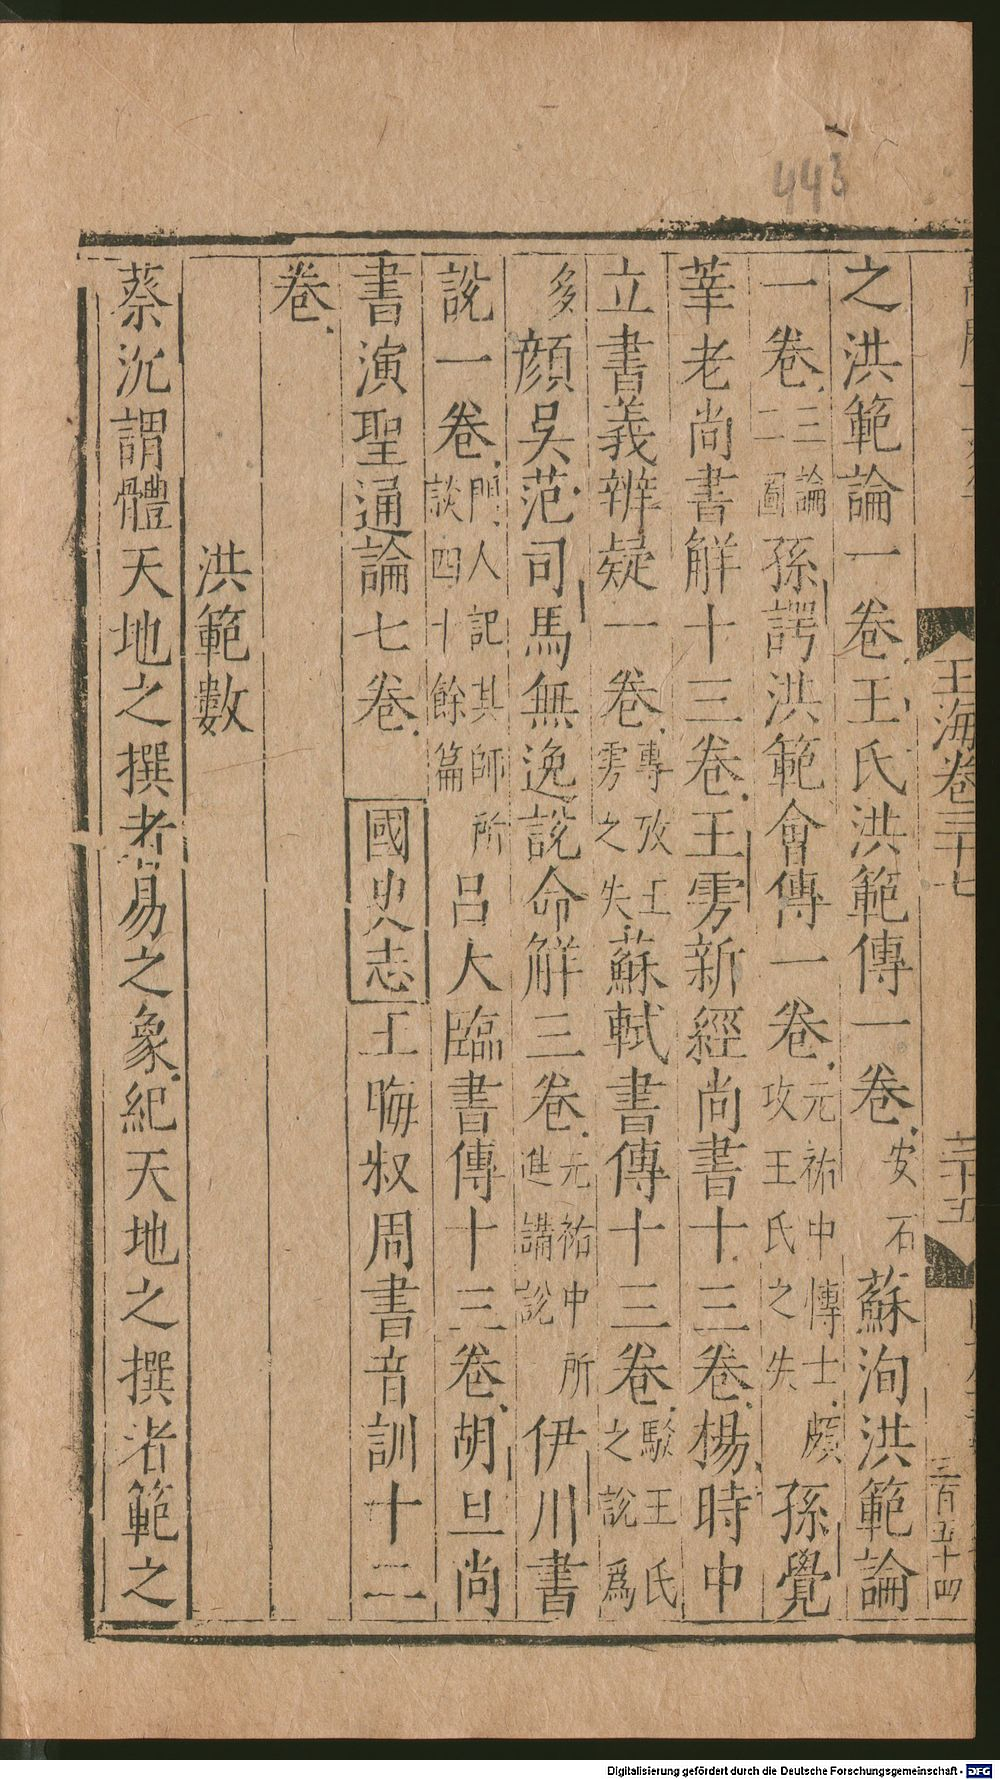 443
玉海卷三十七
三十五
三百五十四
之洪範論一卷王氏洪範傳一卷安石蘇洵洪範論
一卷三論二圖孫諤洪範會傳一卷元祐中博士頗攻王氏之失孫覺
莘老尚書解十三卷王雱新經尚書十三卷楊時中
立書義辨疑一卷專攻王雱之失蘇軾書傳十三卷駁王氏之說爲
多顏吳范司馬無逸說命解三卷元祐中所進講說伊川書
說一卷門人記其師所談四十餘篇呂大臨書傳十三卷胡旦尚
書演聖通論七卷國史志王晦叔周書音訓十二
卷
洪範數
蔡沉謂體天地之撰者易之象紀天地之撰者範之
Digitalisierung gefördert durch die Deutsche Forschungsgemeinschaft - DFG